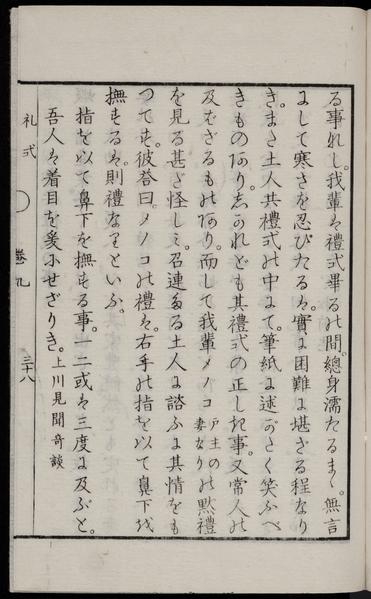 る事れし。我輩も禮式畢るの間。總身濡たるまゝ。無言
にして寒さを忍びたるは。實に困難に堪ざる程なり
き。またき土人共禮式の中にて。筆紙に述がたく笑ふべ
きものあり。志かれども其禮式の正しき事。又常人の
及ばざるものあり。而して我輩メノコ 戸主の妻なり の黙禮
を見る甚ざ怪しミ。召連たる土人に諮ふに其情をも
つてせ。彼答曰。メノコの禮は。右手の指を以て鼻下を
撫するは。則禮なりといふ。
指を以て鼻下を撫する事。一二或は三度に及ぶと。
吾人は着目を爰にせざりき。上川見聞奇談
礼式
巻九
三十八